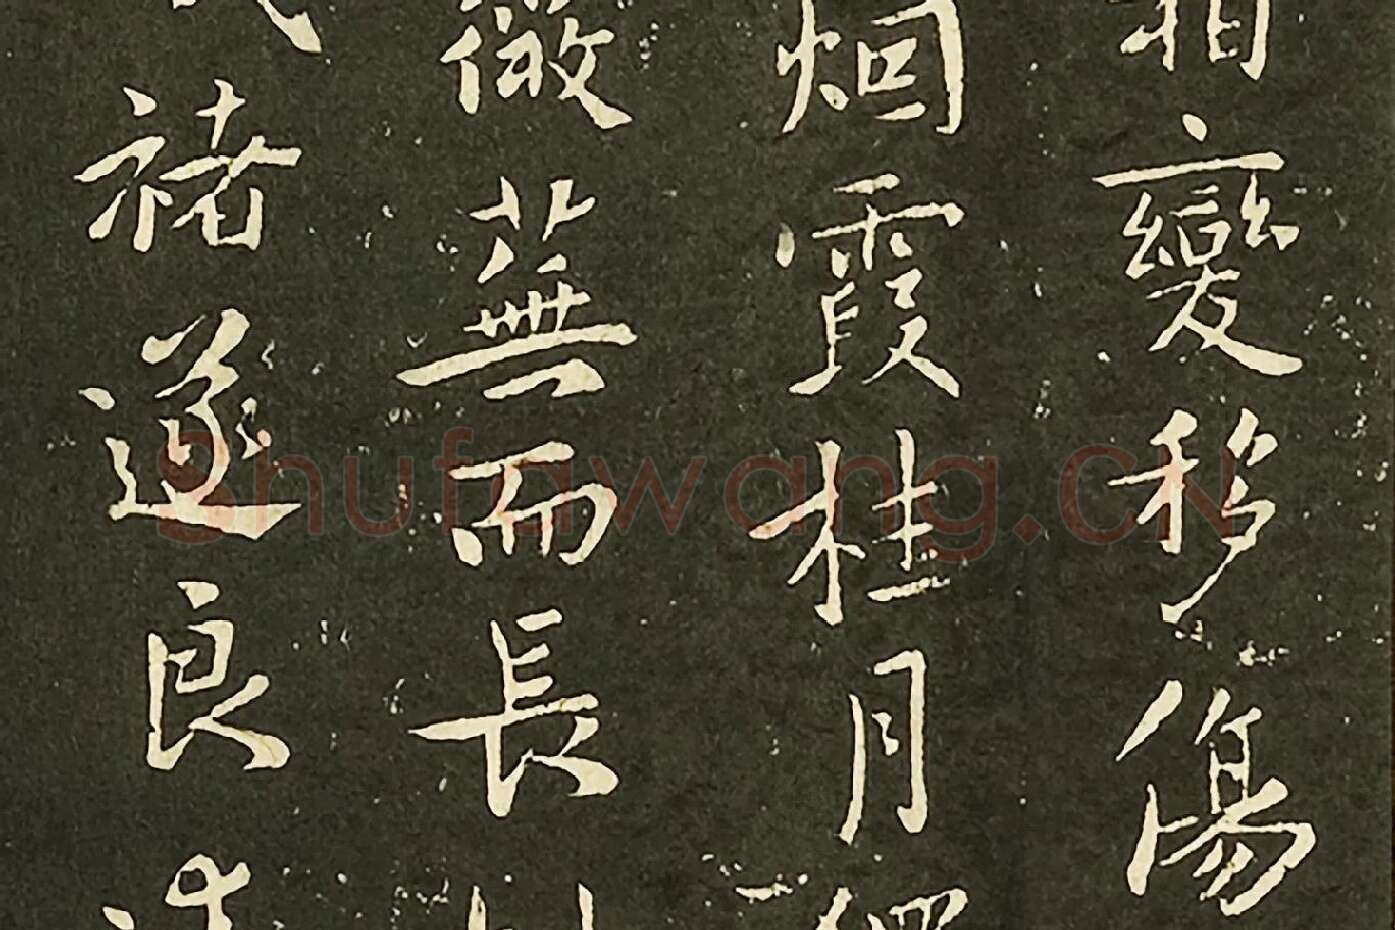 霜變移傷
烟霞桂月
薇蕪而長
褚遂良
Shufawang.CN